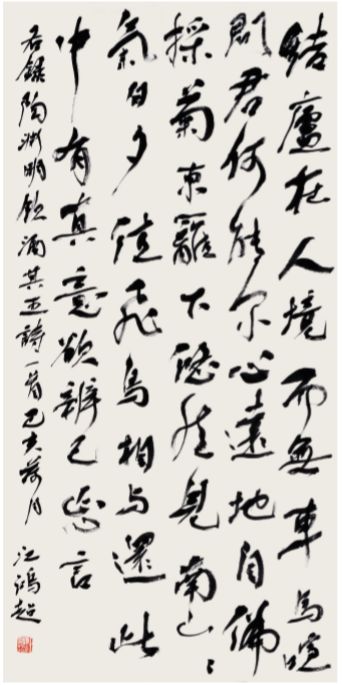 結廬在人境而無車馬喧
問君何能尔心遠地自偏
採菊東籬下悠然見南山〻
氣日夕佳飛鳥相与還此
中有真意欲辨已忘言
右録陶渊明飲酒其五詩一首己亥荷月
江鴻超